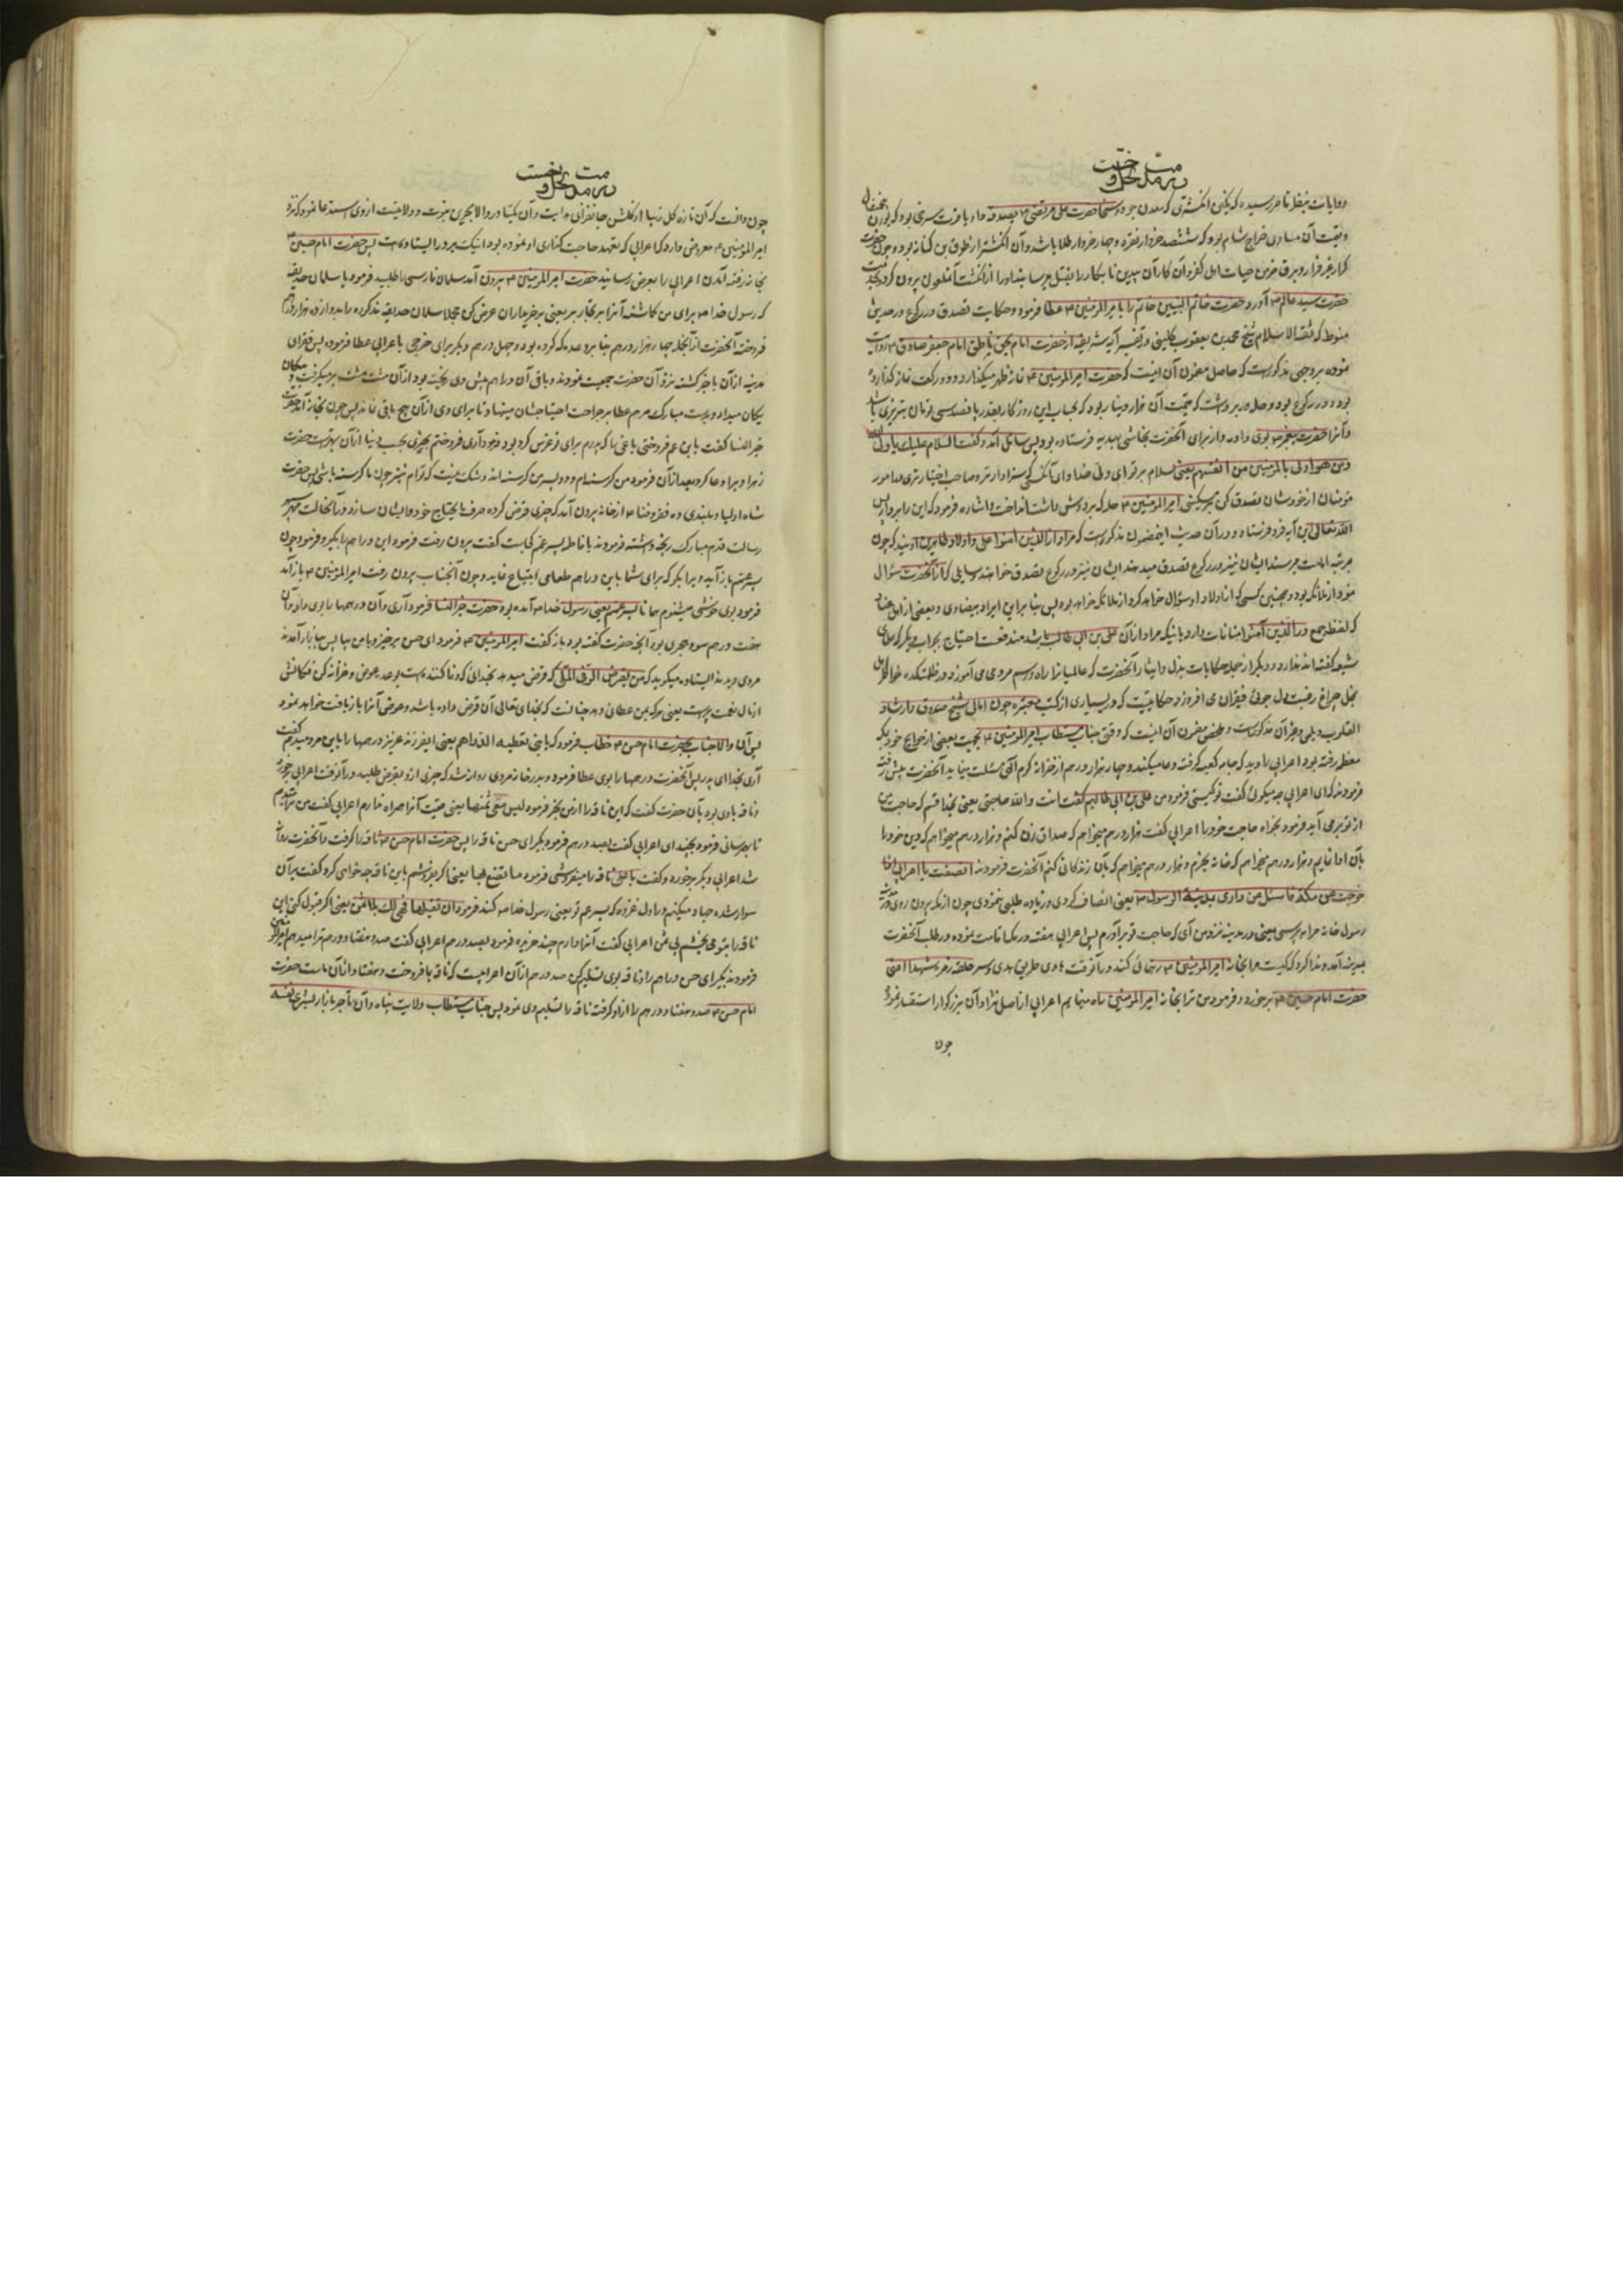 در مدح و
روایات بنظر قاصر رسیده که نگین انگشتری که معدن جود و سخا حضرت علی مرتضی بصدقه داد یاقوت سرخی بود که
وقیمت آن مساوی خراج شام بود که ششصد خروار نقره و چهار خروار طلا باشد و آن انگشتر از طوق بن کنانه بود و چون حضرت
حضرت سید عالم آورد و حضرت خاتم النبیین خاتم را بامیر المومنین عطا فرمود و حکایت تصدق در رکوع در حدیثی
که ثقة الاسلام شیخ محمد بن یعقوب کلینی در تفسیر آیه شریفه از حضرت امام بحق ناطق امام جعفر صادق روایت
نموده بر وجهی مذکورست که حاصل مضمون آن اینست که حضرت امیر المومنین نماز ظهر میکذارد و دو رکعت نماز کذارده
بود و در رکوع بود و حله در بر داشت که قیمت آن هزار دینار بود که بحساب این روزکار بقدر پانصد سی تومان تبریزی باشد
و آنرا حضرت پیغمبر بوی داده و از برای آنحضرت نجاشی بهدیه فرستاده بود پس سائلی آمد و گفت السلام علیک یا ولی الله
ومن هو اولی بالمومنین من انفسهم یعنی سلام بر تو ای ولی خدا و ای آنکسی که سزاوارتر و صاحب اختیارتری در امور
مومنان از خودشان تصدق کن بر مسکینی امیر المومنین حله که بر دوش داشت انداخت و اشاره فرمود که این را بردار پس
الله تعالی این آیه فرو فرستاد و در آن حدیث اینمضمون مذکورست که مراد از الذین آمنوا علی و اولاد طاهرین اویند که چون
بمرتبه امامت برسند ایشان نیز در رکوع تصدق میدهند ایشان نیز در رکوع تصدق خواهند و سایلی که از آنحضرت سؤال
نمود از ملائکه بود و همچنین کسی که از اولاد او سؤال خواهد کرد از ملائکه خواهد بود پس بنا براین ایراد بیضاوی و بعضی از اهل عناد
که لفظ جمع در الذین آمنوا منافات دارد با اینکه مراد از آن علی بن ابی طالب باشد مندفعست احتیاج بجواب دیکر که علمای
شیعه گفته اند ندارد و دیکر از جمله حکایات بذل و ایثار آنحضرت که عالمیانرا راه و رسم مردمی می آموزد و در ظلمتکده خواطر اهل
بخل چراغ رغبت دل جوئی فقیران می افروزد حکایتیست که در بسیاری از کتب معتبره چون امالی شیخ صدوق و ارشاد
القلوب دیلمی و غیر آن مذکورست و ملخص مضمون آن اینست که وقتی جناب مستطاب امیر المومنین بجهت بعضی از حوایج خود بمکه
معظمه رفته بود اعرابی را دید که جامه کعبه گرفته دعا میکند و چهار هزار درهم از خزانه کرم الهی مسئلت مینماید آنحضرت پیش رفته
فرمودند که ای اعرابی چه میگوئی گفت تو کیستی فرمود من علی بن ابی طالبم گفت انت والله حاجتی یعنی بخدا قسم که حاجت من
از تو بر می آید فرمود بخواه حاجت خود را اعرابی گفت هزار درهم میخواهم که صداق زن کنم و هزار درهم میخواهم که دین خود را
بآن ادا نمایم و هزار درهم میخواهم که خانه بخرم و هزار درهم میخواهم که بآن زندکانی کنم آنحضرت فرمودند انصفت یا اعرابی اذا
خرجت من مکه فاسئل عن داری بمدینة الرسول یعنی انصاف کردی و زیاده طلبی ننمودی چون از مکه بیرون روی در مدینه
رسول خانه مرا بپرسی یعنی در مدینه نزد من آی که حاجت تو برآورم پس اعرابی هفته در مکه اقامت نموده در طلب آنحضرت
بمدینه آمد و ندا کرد که کیست مرا بخانه امیر المومنین رهنمائی کند در آنوقت هادی طریق هدی و سر حلقه زمره شهدا اعنی
حضرت امام حسین برخورد و فرمود من ترا بخانه امیر المومنین راه مینمایم اعرابی از اصل نژاد آن بزرکوار استفسار نمود
چون
در مدح و
چون دانست که آن تازه کل زیبا از گلشن جانفزای هدایت و آن یکتا در والا بحرین نبوت و ولایتست از وی استدعا نمود که نزد
امیر المومنین معروض دارد که اعرابی که تعهد حاجت گذاری او نموده بود اینک بر در ایستاده است پس حضرت امام حسین
بخانه رفته آمدن اعرابی را بعرض رسانید حضرت امیر المومنین بیرون آمد سلمان فارسی را طلبید فرمود یا سلمان حدیقه
که رسول خدا برای من کاشته آنرا بر تجار ببر یعنی بر خریداران عرض کن مجملا سلمان حدیقه مذکوره را بدوازده هزار درهم
فروخته آنحضرت از آنجمله چهار هزار درهم بنا بر وعده که کرده بود و چهل درهم دیکر برای خرجی باعرابی عطا فرمود پس فقرای
مدینه از آن با خبر گشته نزد آن حضرت جمعیت نمودند و باقی آن دراهم پیش وی ریخته بود از آن مشت مشت برمیکرفت و
یکان میداد و بدست مبارک مرهم عطا بر جراحت احتیاجشان مینهاد تا برای وی از آن هیچ باقی نماند پس چون بخانه آمد حضرت
خیر النسا گفت یا بن عم فروختی باغی را که پدرم برای تو غرس کرده بود فرمود آری فروختم بچیزی بهتر
زهرا ویرا دعا کرد بعد از آن فرمود من گرسنه ام و دو پسر من گرسنه اند و شک نیست که تو هم نیز چون ما گرسنه باشی پس حضرت
شاه اولیا از خانه بیرون آمد که چیزی قرض کرده صرف مایحتاج خود و ایشان سازد در آنحالت حضرت
رسالت قدم مبارک رنجه داشته فرمودند یا فاطمه پسر عم کجاست گفت بیرون رفت فرمود این دراهم را بگیر و فرمود چون
پسر عمم باز آید ویرا بگو که برای شما باین دراهم طعامی ابتیاع نماید و چون آنجناب بیرون رفت امیر المومنین باز آمد
فرمود بوی خوشی میشنوم همانا پسر عمم یعنی رسول خدا آمده بود حضرت خیر النسا فرمود آری و آن درهمها را بوی داد و آن
هفت درهم سود هجری بود آنچه حضرت گفته بود باز گفت امیر المومنین فرمود ای حسن برخیز و با من بیا پس ببازار آمدند
مردی دیدند ایستاده میگوید که من یقرض الوفی الملی
پس آن والاجناب بحضرت امام حسن خطاب فرمود که یا بنی نعطیه الدراهم یعنی ایفرزند عزیز درهمها را باین مرد میدهم گفت
آری بخدا ای پدر پس آنحضرت درهمها را بوی عطا فرمود و بدر خانه مردی روانه شد که چیزی ازو بقرض طلبد در آنوقت اعرابی برخورد
و ناقه باوی بود بآن حضرت گفت که این ناقه را از من بخر فرمود لیس معی ثمنها یعنی قیمت آنرا همراه ندارم اعرابی گفت من
فرمود بچند ای اعرابی گفت بصد درهم فرمود بگیر ای حسن ناقه را پس حضرت امام حسن ناقه را گرفت و آنحضرت روانه
شد اعرابی دیکر برخورد و گفت یا علی ناقه را میفروشی فرمود ما تصنع بها یعنی اگر بفروشم باین ناقه چه خواهی کرد گفت بر آن
سوار شده جهاد میکنم در اول غزوه که پسر عم تو یعنی رسول خدا کند فرمود ان تقبلها فهی لک بلا ثمن یعنی اگر قبول کنی این
ناقه را بتو می بخشم بی ثمن اعرابی گفت آنرا دارم چند خریده فرمود بصد درهم اعرابی گفت صد و هفتاد درهم ترا میدهم
فرمودند بگیر ای حسن دراهم را و ناقه بوی تسلیم کن صد درهم از آن اعرابیست که ناقه بما فروخت و هفتاد از آن ماست حضرت
امام حسن صد و هفتاد درهم را ازو گرفت ناقه را تسلیم وی نمود پس جناب مستطاب ولایت پناه